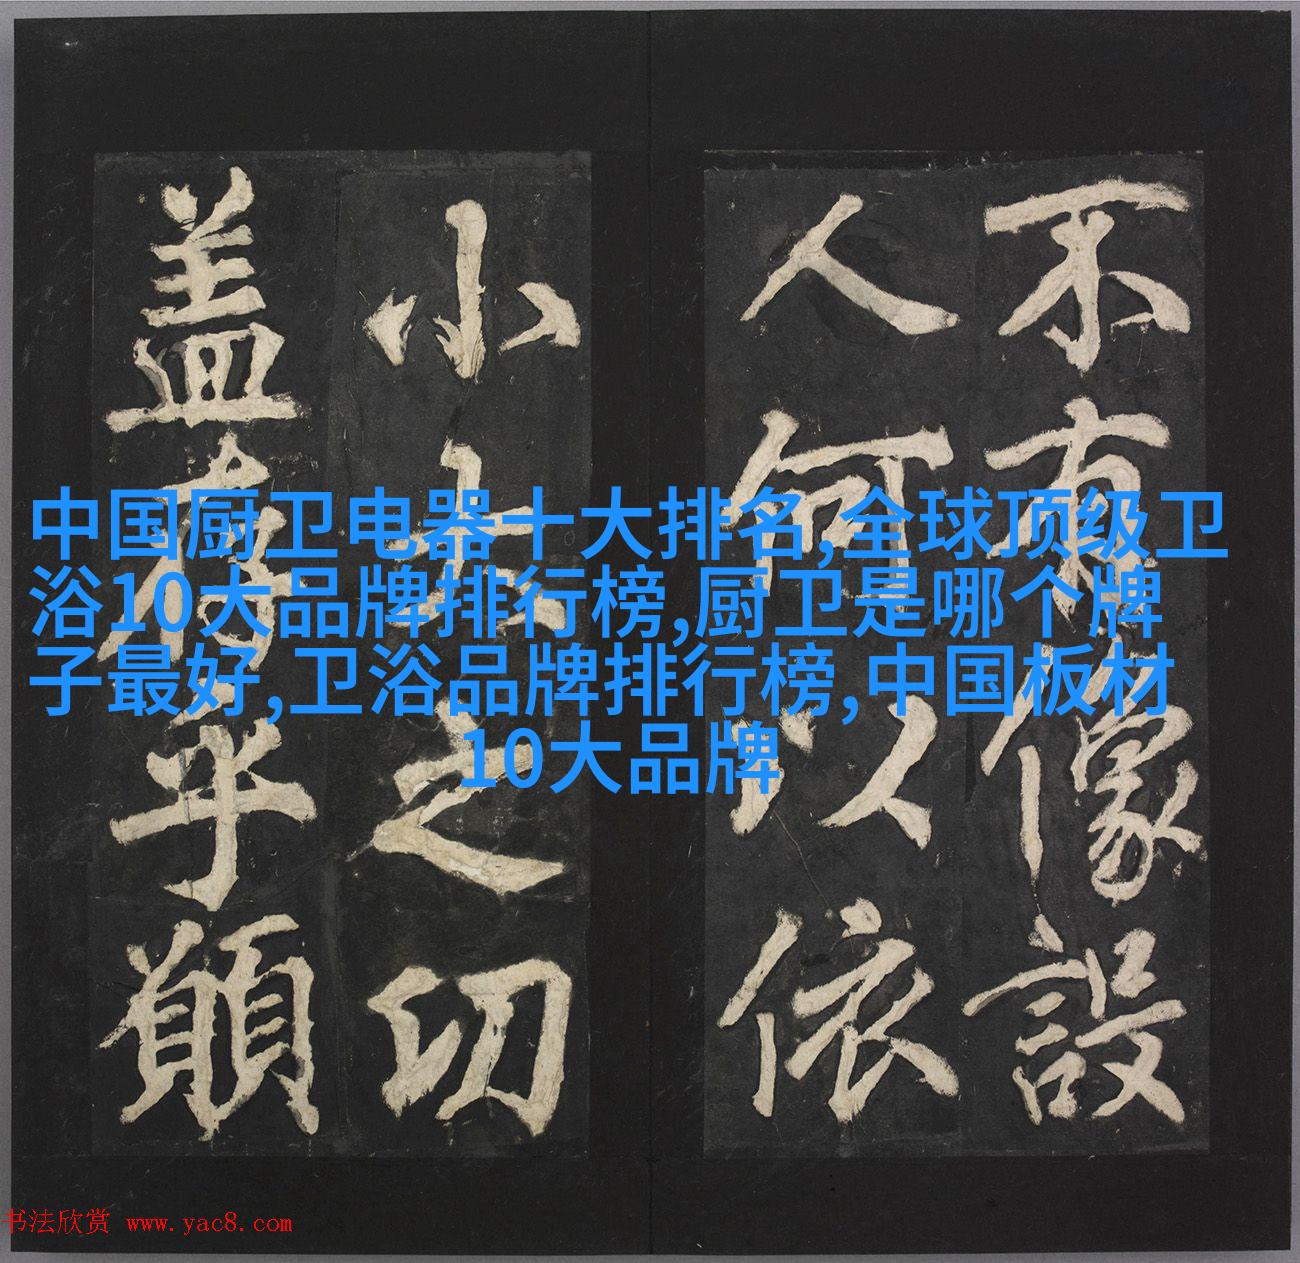 不有像設
人何以依
小大之切
盖存乎願
中国厨卫电器十大排名,全球顶级卫
浴10大品牌排行榜,厨卫是哪个牌
子最好,卫浴品牌排行榜,中国板材
10大品牌
书法欣赏 www.yac8.com